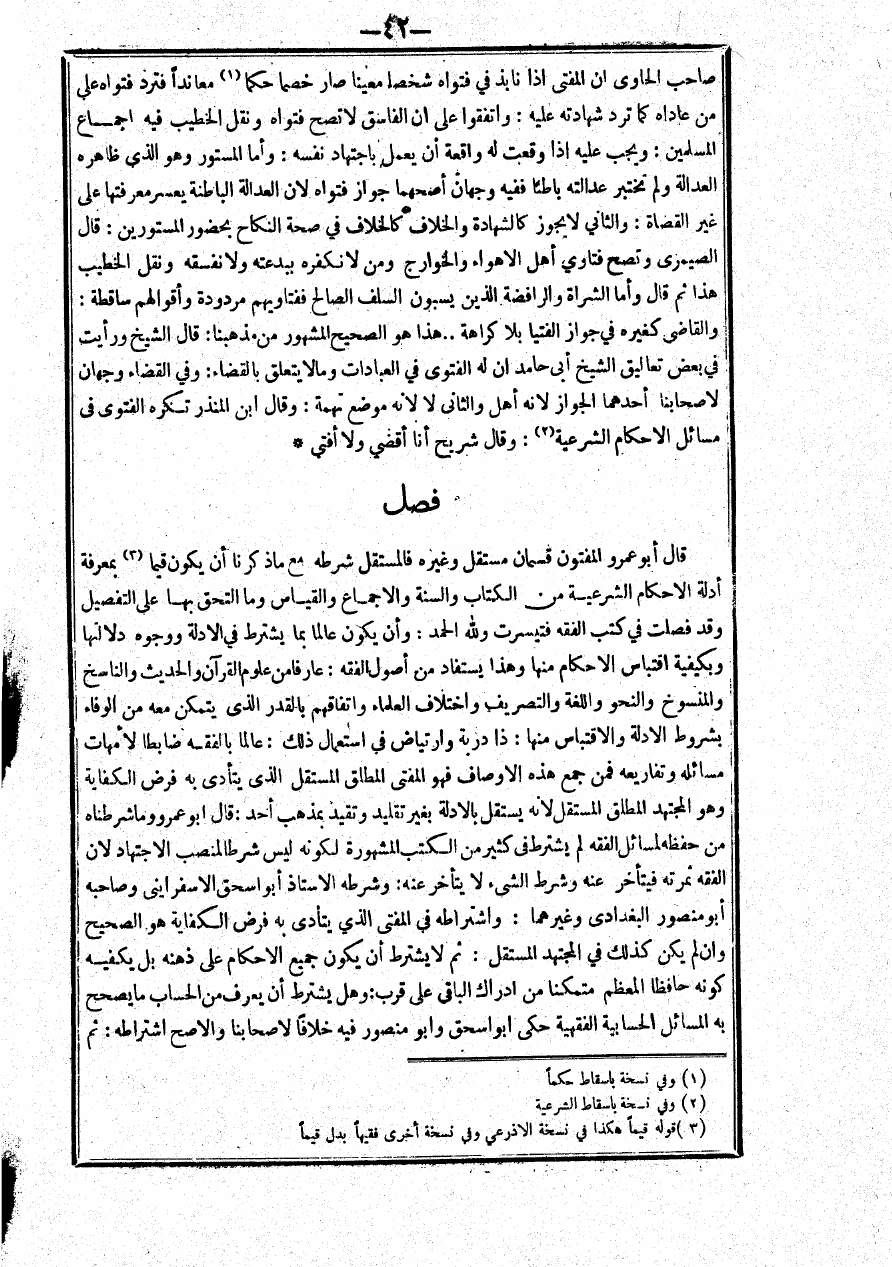 —٤٢—
صاحب الحاوى ان المفتى اذا نابذ في فتواه شخصا معينا صار خصما حكما (١) معانداً فترد فتواه على
من عاداه كما ترد شهادته عليه : واتفقوا على ان الفاسق لا تصح فتواه ونقل الخطيب فيه اجماع
المسلمين : ويجب عليه إذا وقعت له واقعة أن يعمل باجتهاد نفسه : وأما المستور وهو الذي ظاهره
العدالة ولم تختبر عدالته باطنا ففيه وجهان أصحهما جواز فتواه لان العدالة الباطنة يعسر معرفتها على
غير القضاة : والثاني لايجوز كالشهادة والخلاف كالخلاف في صحة النكاح بحضور المستورين : قال
الصيمرى وتصح فتاوي أهل الاهواء والخوارج ومن لا نكفره ببدعته ولا نفسقه ونقل الخطيب
هذا ثم قال وأما الشراة والرافضة الذين يسبون السلف الصالح ففتاويهم مردودة وأقوالهم ساقطة :
والقاضى كغيره في جواز الفتيا بلا كراهة .. هذا هو الصحيح المشهور من مذهبنا : قال الشيخ ورأيت
في بعض تعاليق الشيخ أبى حامد ان له الفتوى في العبادات ومالا يتعلق بالقضاء : وفي القضاء وجهان
لاصحابنا أحدهما الجواز لانه أهل والثانى لا لانه موضع تهمة : وقال ابن المنذر تكره الفتوى فى
مسائل الاحكام الشرعية (٢) : وقال شريح أنا أقضي ولا أفتي *
فصل
قال أبو عمرو المفتون قسمان مستقل وغيره فالمستقل شرطه مع ماذكرنا أن يكون قيما (٣) بمعرفة
أدلة الاحكام الشرعية من الكتاب والسنة والاجماع والقياس وما التحق بها على التفصيل
وقد فصلت في كتب الفقه فتيسرت ولله الحمد : وأن يكون عالما بما يشترط في الادلة ووجوه دلالتها
وبكيفية اقتباس الاحكام منها وهذا يستفاد من أصول الفقه : عارفا من علوم القرآن والحديث والناسخ
والمنسوخ والنحو واللغة والتصريف واختلاف العلماء واتفاقهم بالقدر الذى يتمكن معه من الوفاء
بشروط الادلة والاقتباس منها : ذا دربة وارتياض في استعمال ذلك : عالما بالفقه ضابطا لأمهات
مسائله وتفاريعه فمن جمع هذه الاوصاف فهو المفتى المطلق المستقل الذى يتأدى به فرض الكفاية
وهو المجتهد المطلق المستقل لانه يستقل بالادلة بغير تقليد وتقيد بمذهب أحد : قال ابو عمرو وما شرطناه
من حفظه لمسائل الفقه لم يشترط فى كثير من الكتب المشهورة لكونه ليس شرطا لمنصب الاجتهاد لان
الفقه ثمرته فيتأخر عنه وشرط الشىء لا يتأخر عنه : وشرطه الاستاذ أبو اسحق الاسفراينى وصاحبه
أبو منصور البغدادى وغيرهما : واشتراطه في المفتى الذي يتأدى به فرض الكفاية هو الصحيح
وان لم يكن كذلك في المجتهد المستقل : ثم لا يشترط أن يكون جميع الاحكام على ذهنه بل يكفيه
كونه حافظا المعظم متمكنا من ادراك الباقى على قرب : وهل يشترط أن يعرف من الحساب ما يصحح
به المسائل الحسابية الفقهية حكى ابو اسحق وابو منصور فيه خلافا لاصحابنا والاصح اشتراطه : ثم
(١) وفي نسخة باسقاط حكماً
(٢) وفي نسخة باسقاط الشرعية
(٣) قوله قيماً هكذا في نسخة الاذرعي وفي نسخة أخرى فقيهاً بدل قيماً